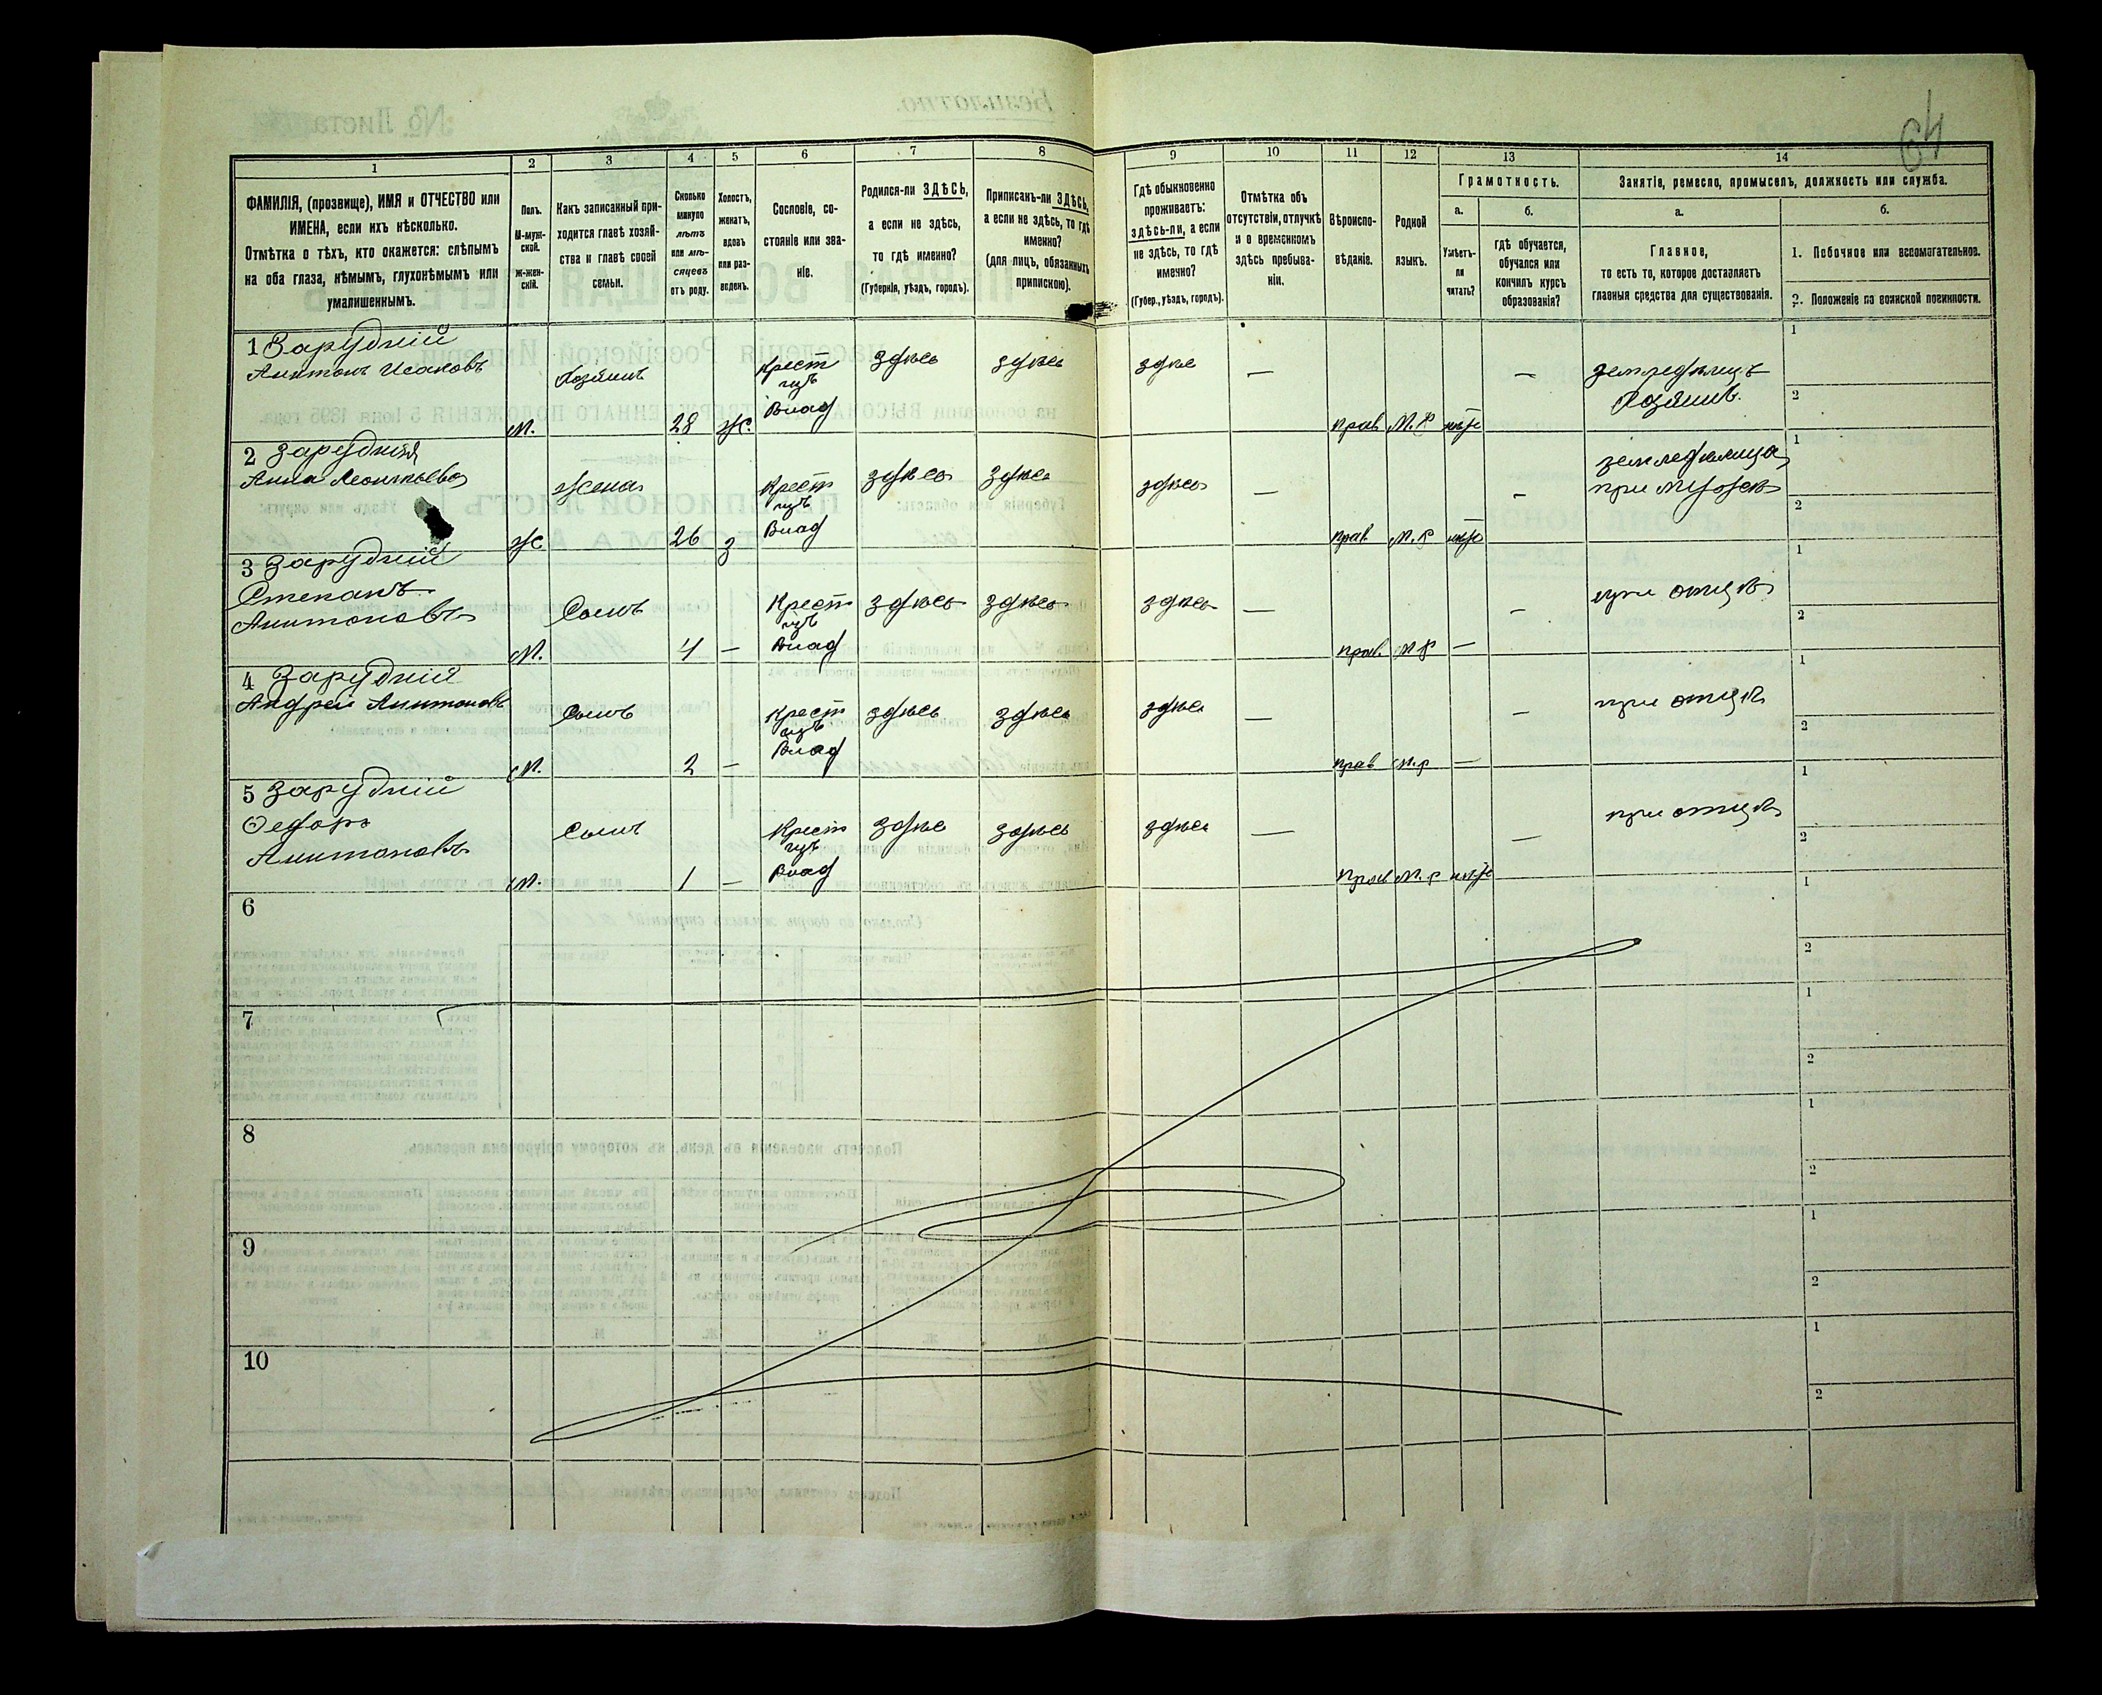 64
1
2
3
4
5
6
7
8
9
10
11
12
13
14
ФАМИЛІЯ, (прозвище), ИМЯ и ОТЧЕСТВО или
ИМЕНА, если ихъ нѣсколько.
Отмѣтка о тѣхъ, кто окажется: слѣпымъ
на оба глаза, нѣмымъ, глухонѣмымъ или
умалишеннымъ.
Полъ.
М-муж-
ской.
ж-жен-
скій.
Какъ записанный при-
ходится главѣ хозяй-
ства и главѣ своей
семьи.
Сколько
минуло
лѣтъ
или мѣ-
сяцевъ
отъ роду.
Холостъ,
женатъ,
вдовъ
или раз-
веденъ.
Сословіе, со-
стояніе или зва-
ніе.
Родился-ли ЗДѢСЬ,
а если не здѣсь,
то гдѣ именно?
(Губернія, уѣздъ, городъ).
Приписанъ-ли ЗДѢСЬ,
а если не здѣсь, то гдѣ
именно?
(для лицъ, обязанныхъ
припискою).
Гдѣ обыкновенно
проживаетъ:
здѣсь-ли, а если
не здѣсь, то гдѣ
именно?
(Губер., уѣздъ, городъ).
Отмѣтка объ
отсутствіи, отлучкѣ
и о временномъ
здѣсь пребыва-
ніи.
Вѣроиспо-
вѣданіе.
Родной
языкъ.
Грамотность.
а.
Умѣетъ-
ли
читать?
б.
гдѣ обучается,
обучался или
кончилъ курсъ
образованія?
Занятіе, ремесло, промыселъ, должность или служба.
а.
Главное,
то есть то, которое доставляетъ
главныя средства для существованія.
б.
1. Побочное или вспомогательное.
2. Положеніе по воинской повинности.
1 Зарудній
Антонъ Исаковъ
М.
Хозяинъ
28
Ж.
Крест
изъ
Влад
здѣсь
здѣсь
здѣс
—
Прав
М.Р
нѣтъ
—
земледѣлецъ
Хозяинъ.
1
2
2 Зарудняя
Анна Леонтьева
Ж
Жена
26
з
Крест
изъ
Влад
здѣсь
здѣсь
здѣсь
—
Прав
М.Р
нѣтъ
—
земледѣлица
при мужѣ
1
2
3 Зарудній
Степанъ
Антоновъ
М.
Сынъ
4
—
Крест
изъ
Влад
здѣсь
здѣсь
здѣсь
—
Прав.
М Р
—
—
при отцѣ
1
2
4 Зарудній
Андрей Антоновъ
М.
Сынъ
2
—
Крест
изъ
Влад
здѣсь
здѣсь
здѣсь
—
Прав
М.р
—
—
при отцѣ
1
2
5 Зарудній
Ѳедоръ
Антоновъ
М.
Сынъ
1
—
Крест
изъ
Влад
здѣс
здѣсь
здѣсь
—
Прав
М.р
нѣтъ
—
при отцѣ
1
2
6
1
2
7
1
2
8
1
2
9
1
2
10
1
2